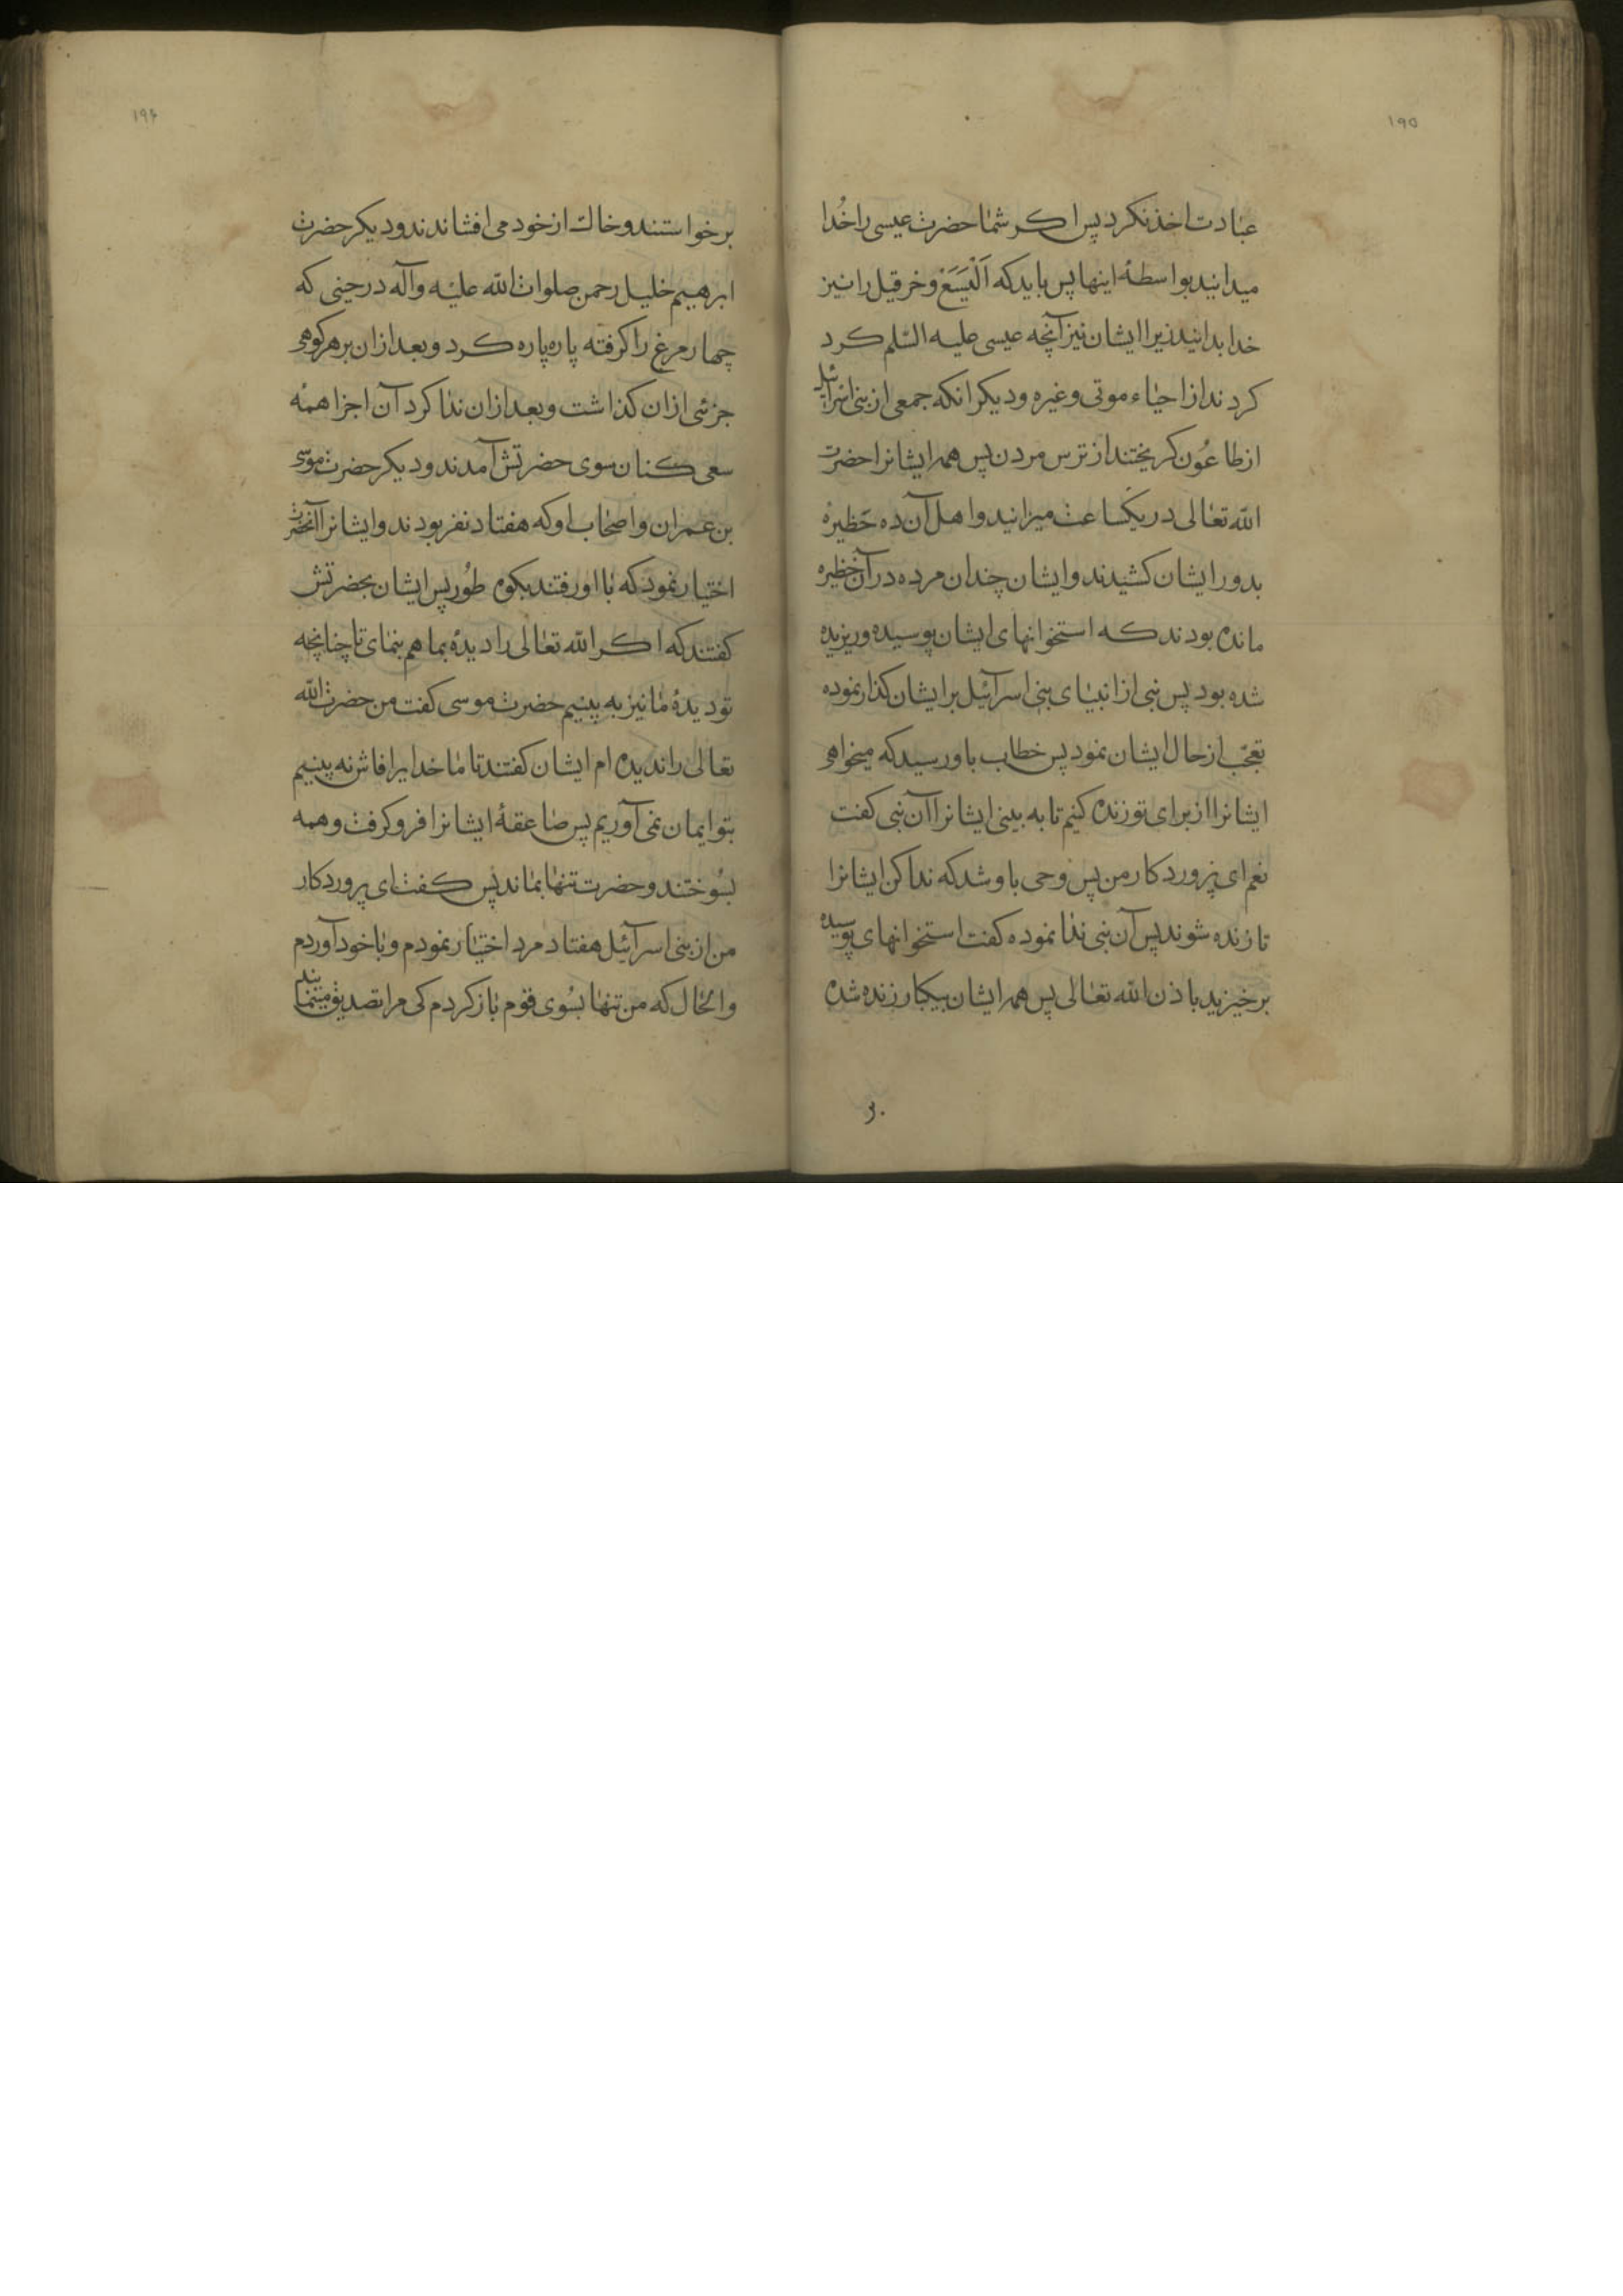 ۱۹۵
عبادت اخذ نکرد پس اکر شما حضرت عیسی را خُدا
میدانید بواسطهٔ اینها پس باید که اَلْیَسَعْ و خرقیل را نیز
خدا بدانید زیرا ایشان نیز آنچه عیسی علیه السّلم کرد
کردند از احیاء موتی و غیره و دیکر انکه جمعی از بنی اسرائیل
از طاعُون کریختند از ترس مردن پس همه ایشانرا حضرت
اللّه تعالی در یکساعت میرانید و اهل آن ده حَظیره
بدور ایشان کشیدند و ایشان چندان مرده در آن حظیره
مانده بودند که استخوانهای ایشان پوسیده و ریزیده
شده بود پس نبی از انبیای بنی اسرآئیل بر ایشان کذار نموده
تعجّب از حال ایشان نمود پس خطاب باو رسید که میخواهی
ایشانرا از برای تو زنده کنیم تا به بینی ایشانرا آن نبی کفت
نعم ای پروردکار من پس وحی باو شد که ندا کن ایشانرا
تا زنده شوند پس آن نبی ندا نموده کفت استخوانهای پوسیده
برخیزید باذن اللّه تعالی پس همه ایشان بیکبار زنده شده
۱۹۶
برخواستند و خاك از خود می افشاندند و دیکر حضرت
ابرهیم خلیل رحمن صلوات اللّه علیه و آله در حینی که
چهار مرغ را کرفته پاره پاره کرد و بعد از ان بر هر کوهی
جزئی از ان کذاشت و بعد از ان ندا کرد آن اجزا همه
سعی کنان سوی حضرتش آمدند و دیکر حضرت موسی
بن عمران و اصحاب او که هفتاد نفر بودند و ایشانرا آنحضرت
اختیار نمود که با او رفتند بکوه طُور پس ایشان بحضرتش
کفتند که اکر اللّه تعالی را دیدهٔ بما هم بنمای تا چنانچه
تو دیدهٔ ما نیز به بینیم حضرت موسی کفت من حضرت اللّه
تعالی را ندیده ام ایشان کفتند تا ما خدایرا فاش نه بینیم
بتو ایمان نمی آوریم پس صاعقهٔ ایشانرا فرو کرفت و همه
بسُوختند و حضرت تنها بماند پس کفت ای پروردکار
من از بنی اسرآئیل هفتاد مرد اختیار نمودم و با خود آوردم
و الحال که من تنها بسُوی قوم باز کردم کی مرا تصدیق مینمایند